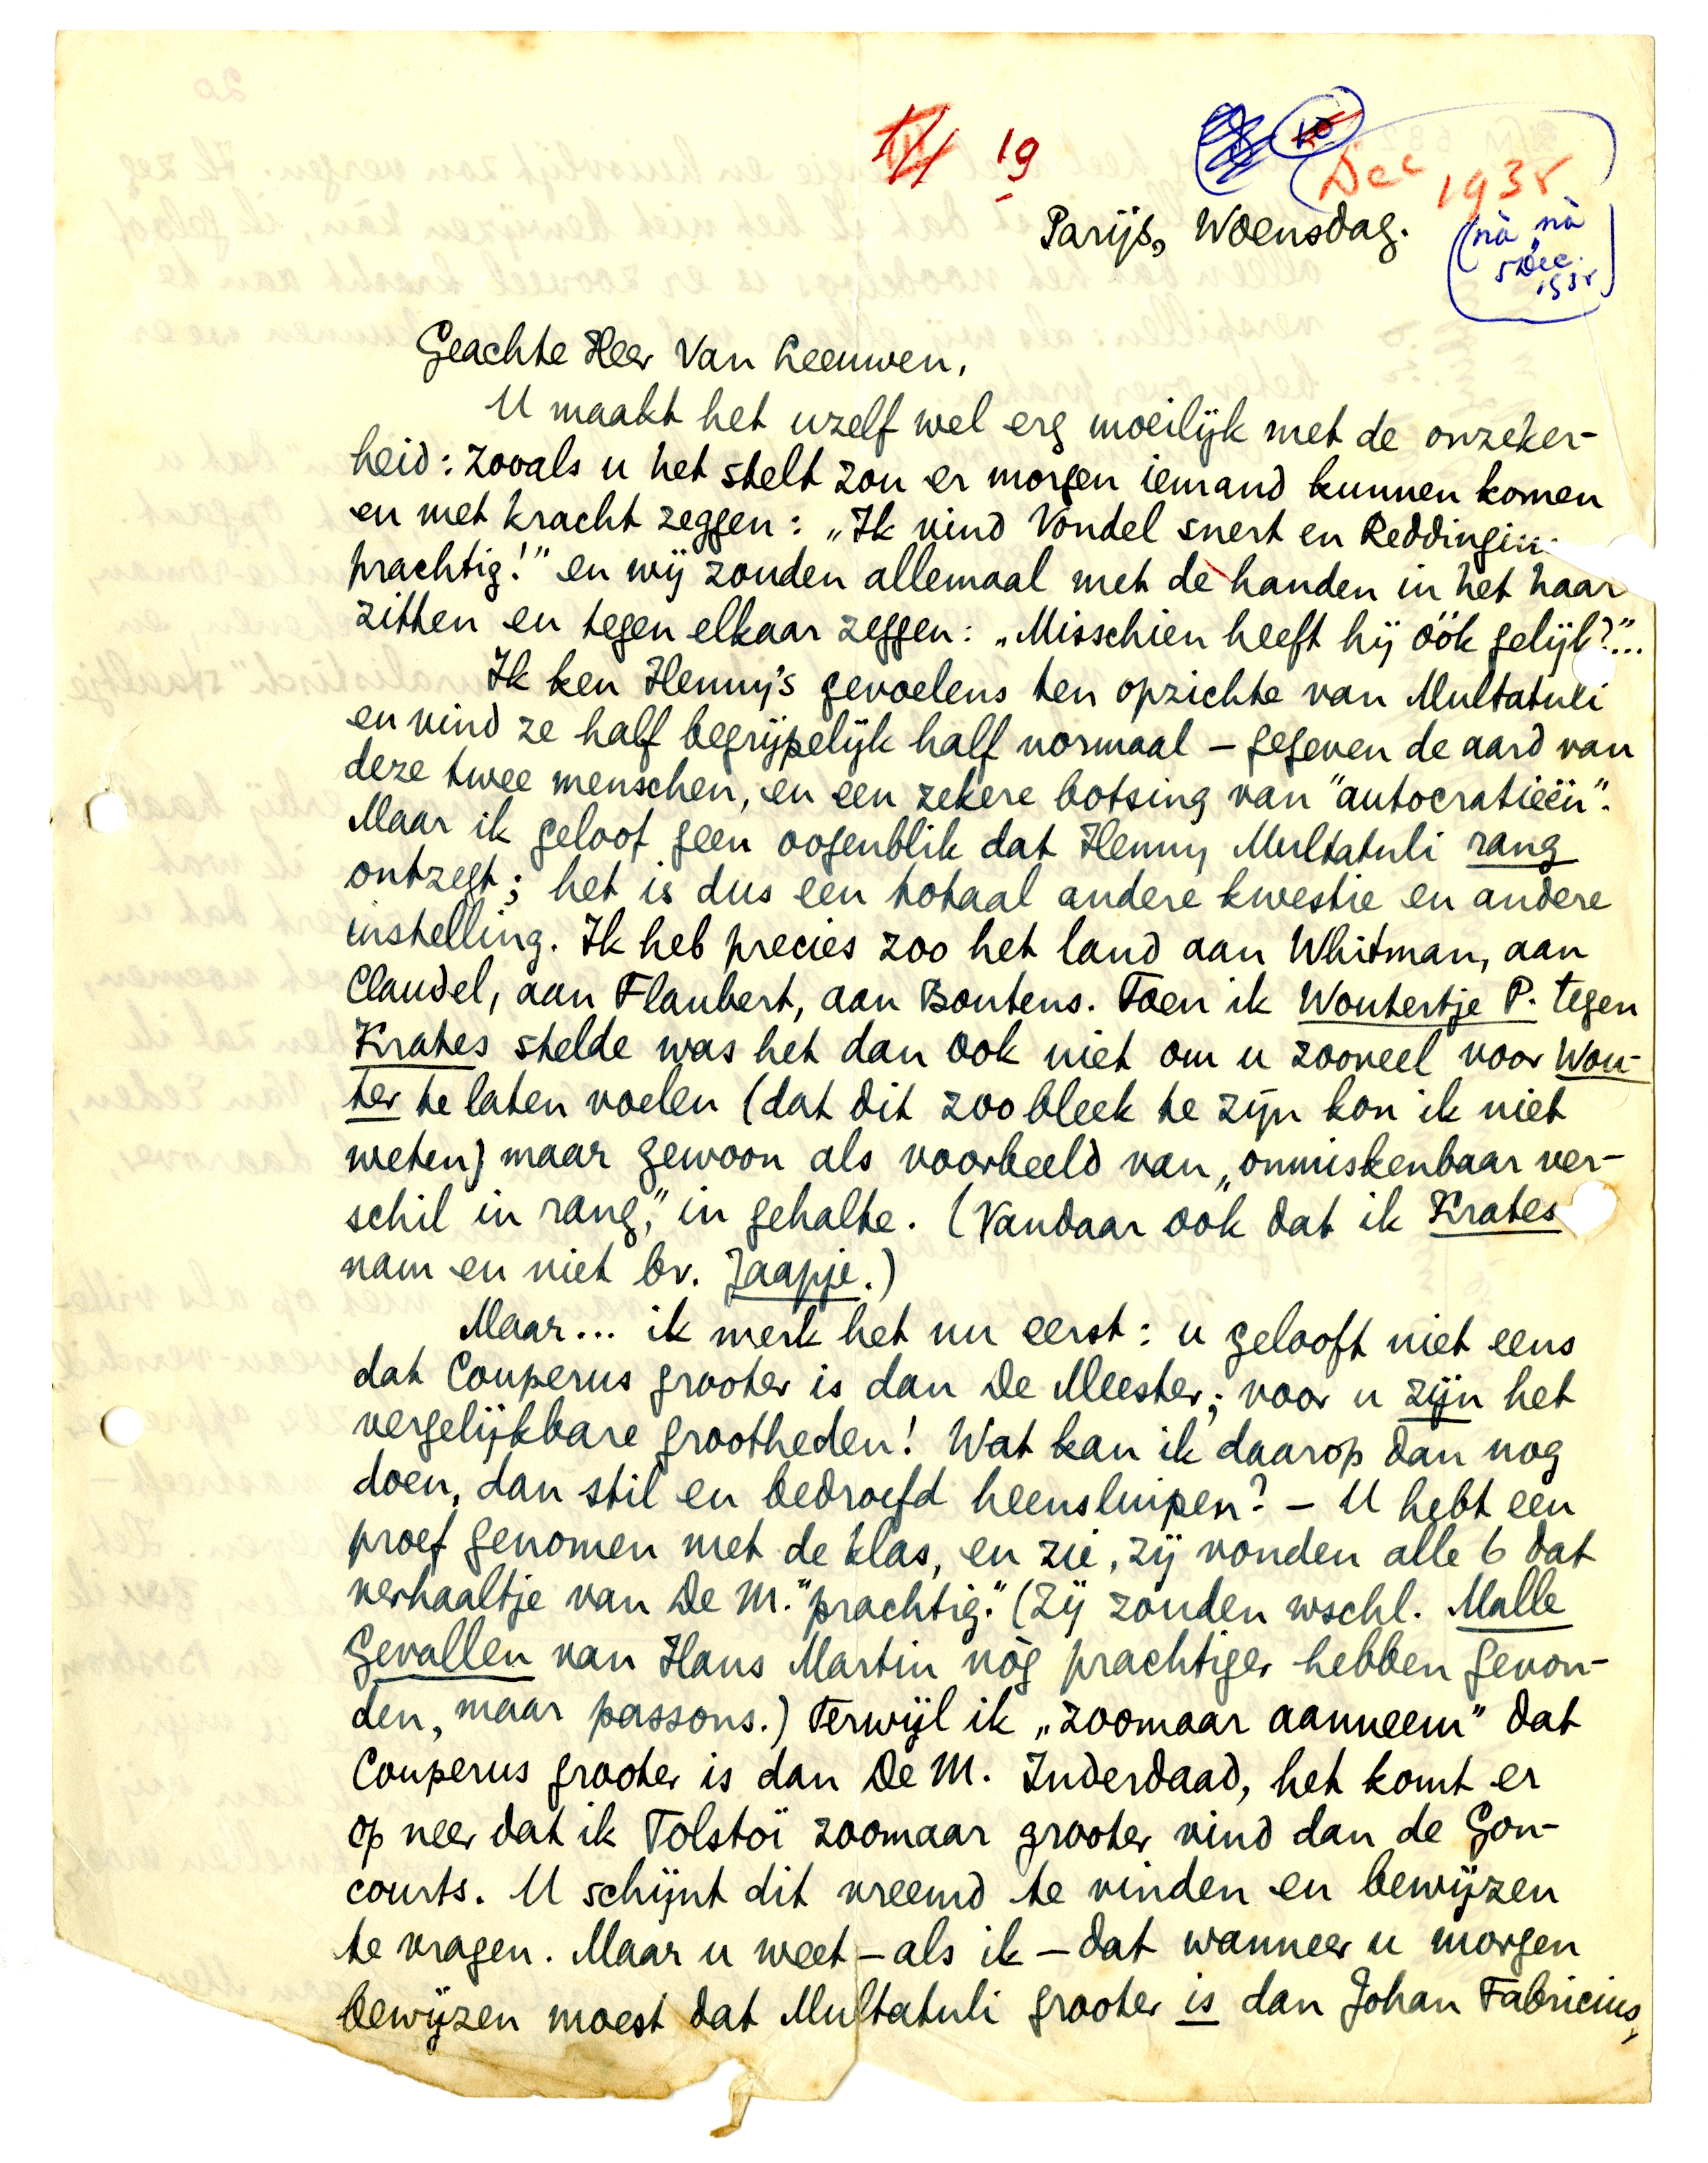 19
10
Dec 1935
Parijs, Woensdag.
(nà nà
5 Dec.
1935
Geachte Heer Van Leeuwen,
U maakt het uzelf wel erg moeilijk met de onzeker-
heid: zooals u het stelt zou er morgen iemand kunnen komen
en met kracht zeggen: „Ik vind Vondel snert en Reddingius
prachtig!" en wij zouden allemaal met de handen in het haar
zitten en tegen elkaar zeggen: „Misschien heeft hij óók gelijk?"...
Ik ken Henny's gevoelens ten opzichte van Multatuli
en vind ze half begrijpelijk half normaal – gegeven de aard van
deze twee menschen, en een zekere botsing van "autocratieën".
Maar ik geloof geen oogenblik dat Henny Multatuli rang
ontzegt; het is dus een totaal andere kwestie en andere
instelling. Ik heb precies zoo het land aan Whitman, aan
Claudel, aan Flaubert, aan Boutens. Toen ik Woutertje P. tegen
Krates stelde was het dan ook niet om u zooveel voor Wou-
ter te laten voelen (dat dit zoo bleek te zijn kon ik niet
weten) maar gewoon als voorbeeld van „onmiskenbaar ver-
schil in rang," in gehalte. (Vandaar ook dat ik Krates
nam en niet bv. Jaapje.)
Maar... ik merk het nu eerst: u gelooft niet eens
dat Couperus grooter is dan De Meester; voor u zijn het
vergelijkbare grootheden! Wat kan ik daarop dan nog
doen, dan stil en bedroefd heensluipen? – U hebt een
proef genomen met de klas, en zie, zij vonden alle 6 dat
verhaaltje van De M. "prachtig." (Zij zouden wschl. Malle
Gevallen van Hans Martin nòg prachtiger hebben gevon-
den, maar passons.) Terwijl ik „zoomaar aanneem" dat
Couperus grooter is dan De M. Inderdaad, het komt er
op neer dat ik Tolstoï zoomaar grooter vind dan de Gon-
courts. U schijnt dit vreemd te vinden en bewijzen
te vragen. Maar u weet – als ik – dat wanneer u morgen
bewijzen moest dat Multatuli grooter is dan Johan Fabricius,